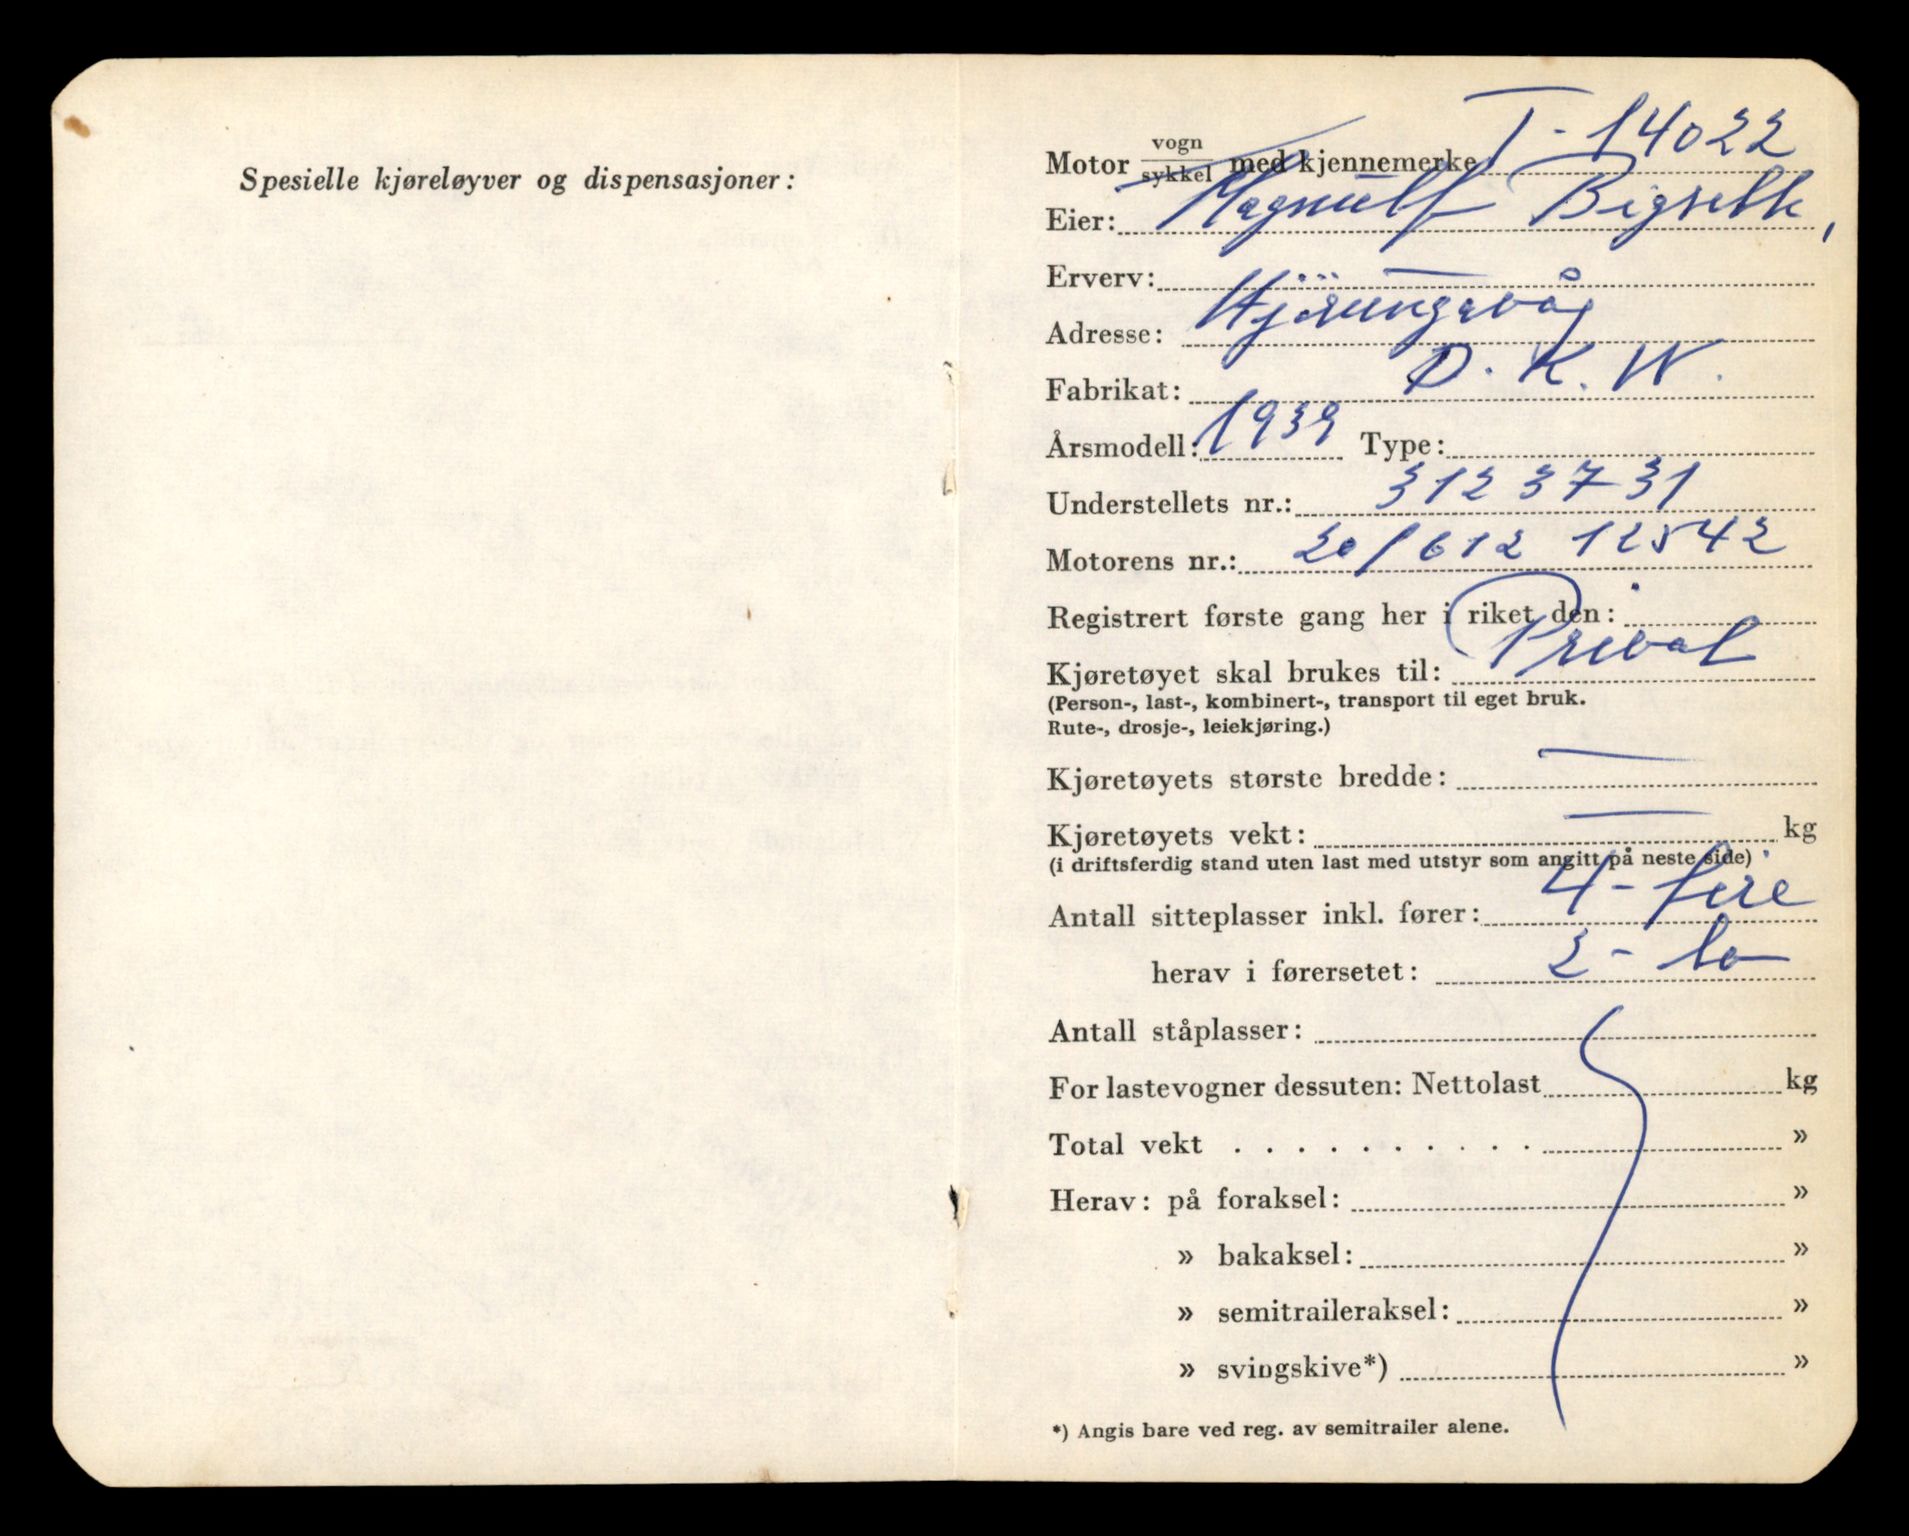 Spesielle kjøreløyver og dispensasjoner:
Motor vogn/sykkel med kjennemerke T-14022
Eier: Magnulf Bigseth,
Erverv: —
Adresse: Hjørungavåg
Fabrikat: D. K. W.
Årsmodell: 1939 Type:
Understellets nr.: 3123731
Motorens nr.: 20/612 12542
Registrert første gang her i riket den:
Kjøretøyet skal brukes til: Privat
(Person-, last-, kombinert-, transport til eget bruk.
Rute-, drosje-, leiekjøring.)
Kjøretøyets største bredde: —
Kjøretøyets vekt: — kg
(i driftsferdig stand uten last med utstyr som angitt på neste side)
Antall sitteplasser inkl. fører: 4 - fire
herav i førersetet: 2 - to
Antall ståplasser:
For lastevogner dessuten: Nettolast kg
Total vekt . . . . . . . . . . »
Herav: på foraksel: »
» bakaksel: »
» semitraileraksel: »
» svingskive*) »
*) Angis bare ved reg. av semitrailer alene.